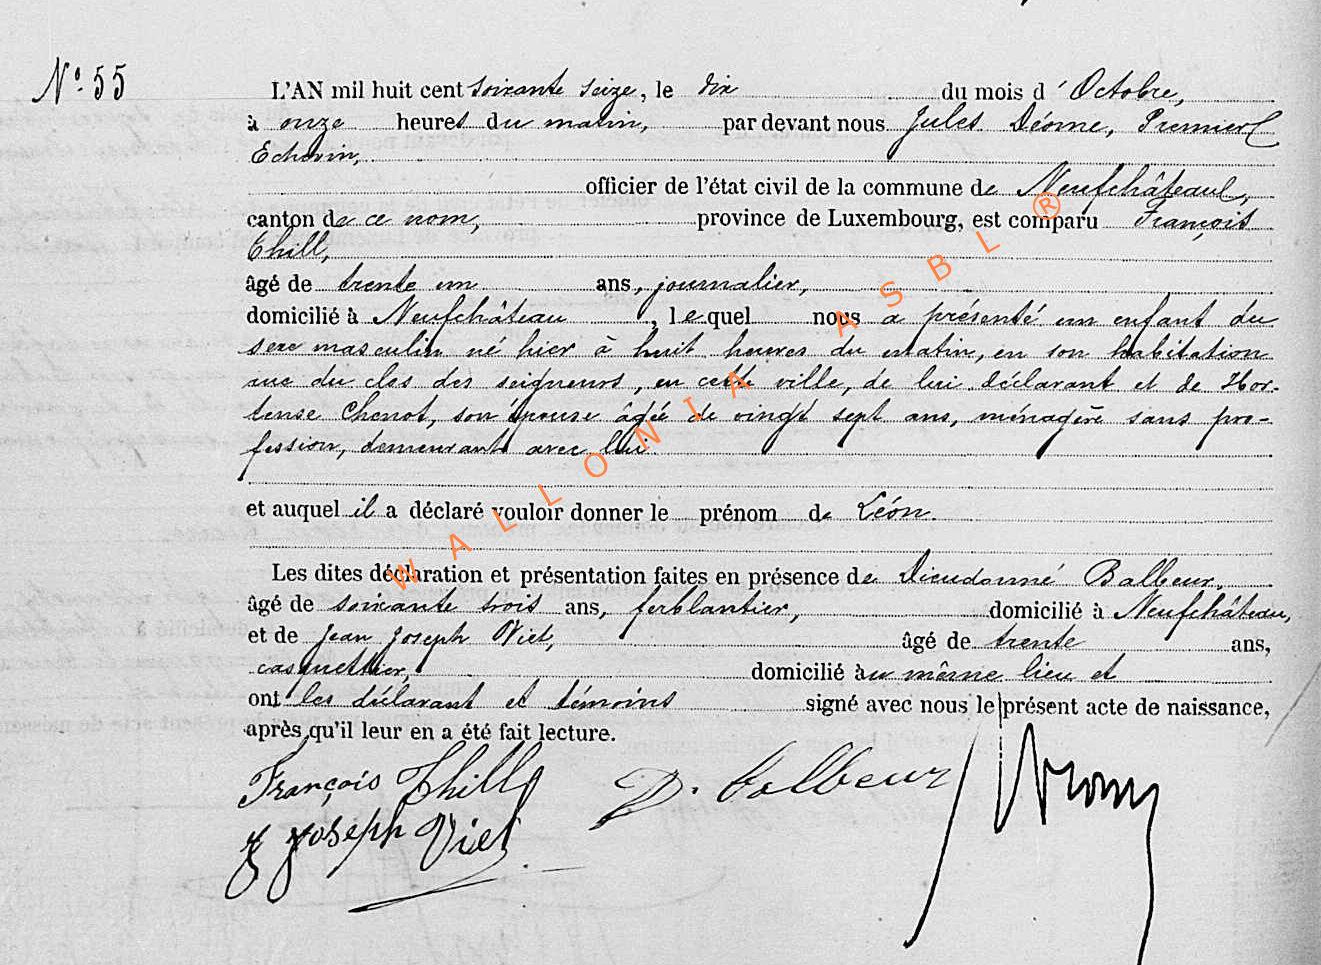 N° 55
L'AN mil huit cent soixante seize, le dix du mois d'Octobre,
à onze heures du matin, par devant nous Jules Déome, Premier
Echevin,
officier de l'état civil de la commune de Neufchâteau,
canton de ce nom, province de Luxembourg, est comparu François
Thill,
âgé de trente un ans, journalier,
domicilié à Neufchâteau, lequel nous a présenté un enfant du
sexe masculin né hier à huit heures du matin, en son habitation
rue du clos des seigneurs, en cette ville, de lui déclarant et de Hor-
tense Chenot, son épouse âgée de vingt sept ans, ménagère sans pro-
fession, demeurant avec lui
et auquel il a déclaré vouloir donner le prénom de Léon.
Les dites déclaration et présentation faites en présence de Dieudonné Balbeur,
âgé de soixante trois ans, ferblantier, domicilié à Neufchâteau,
et de Jean Joseph Viet, âgé de trente ans,
casquettier, domicilié au même lieu et
ont les déclarant et témoins signé avec nous le présent acte de naissance,
après qu'il leur en a été fait lecture.
François Thill D. Balbeur
J Joseph Viet
WALLONIA ASBL ®